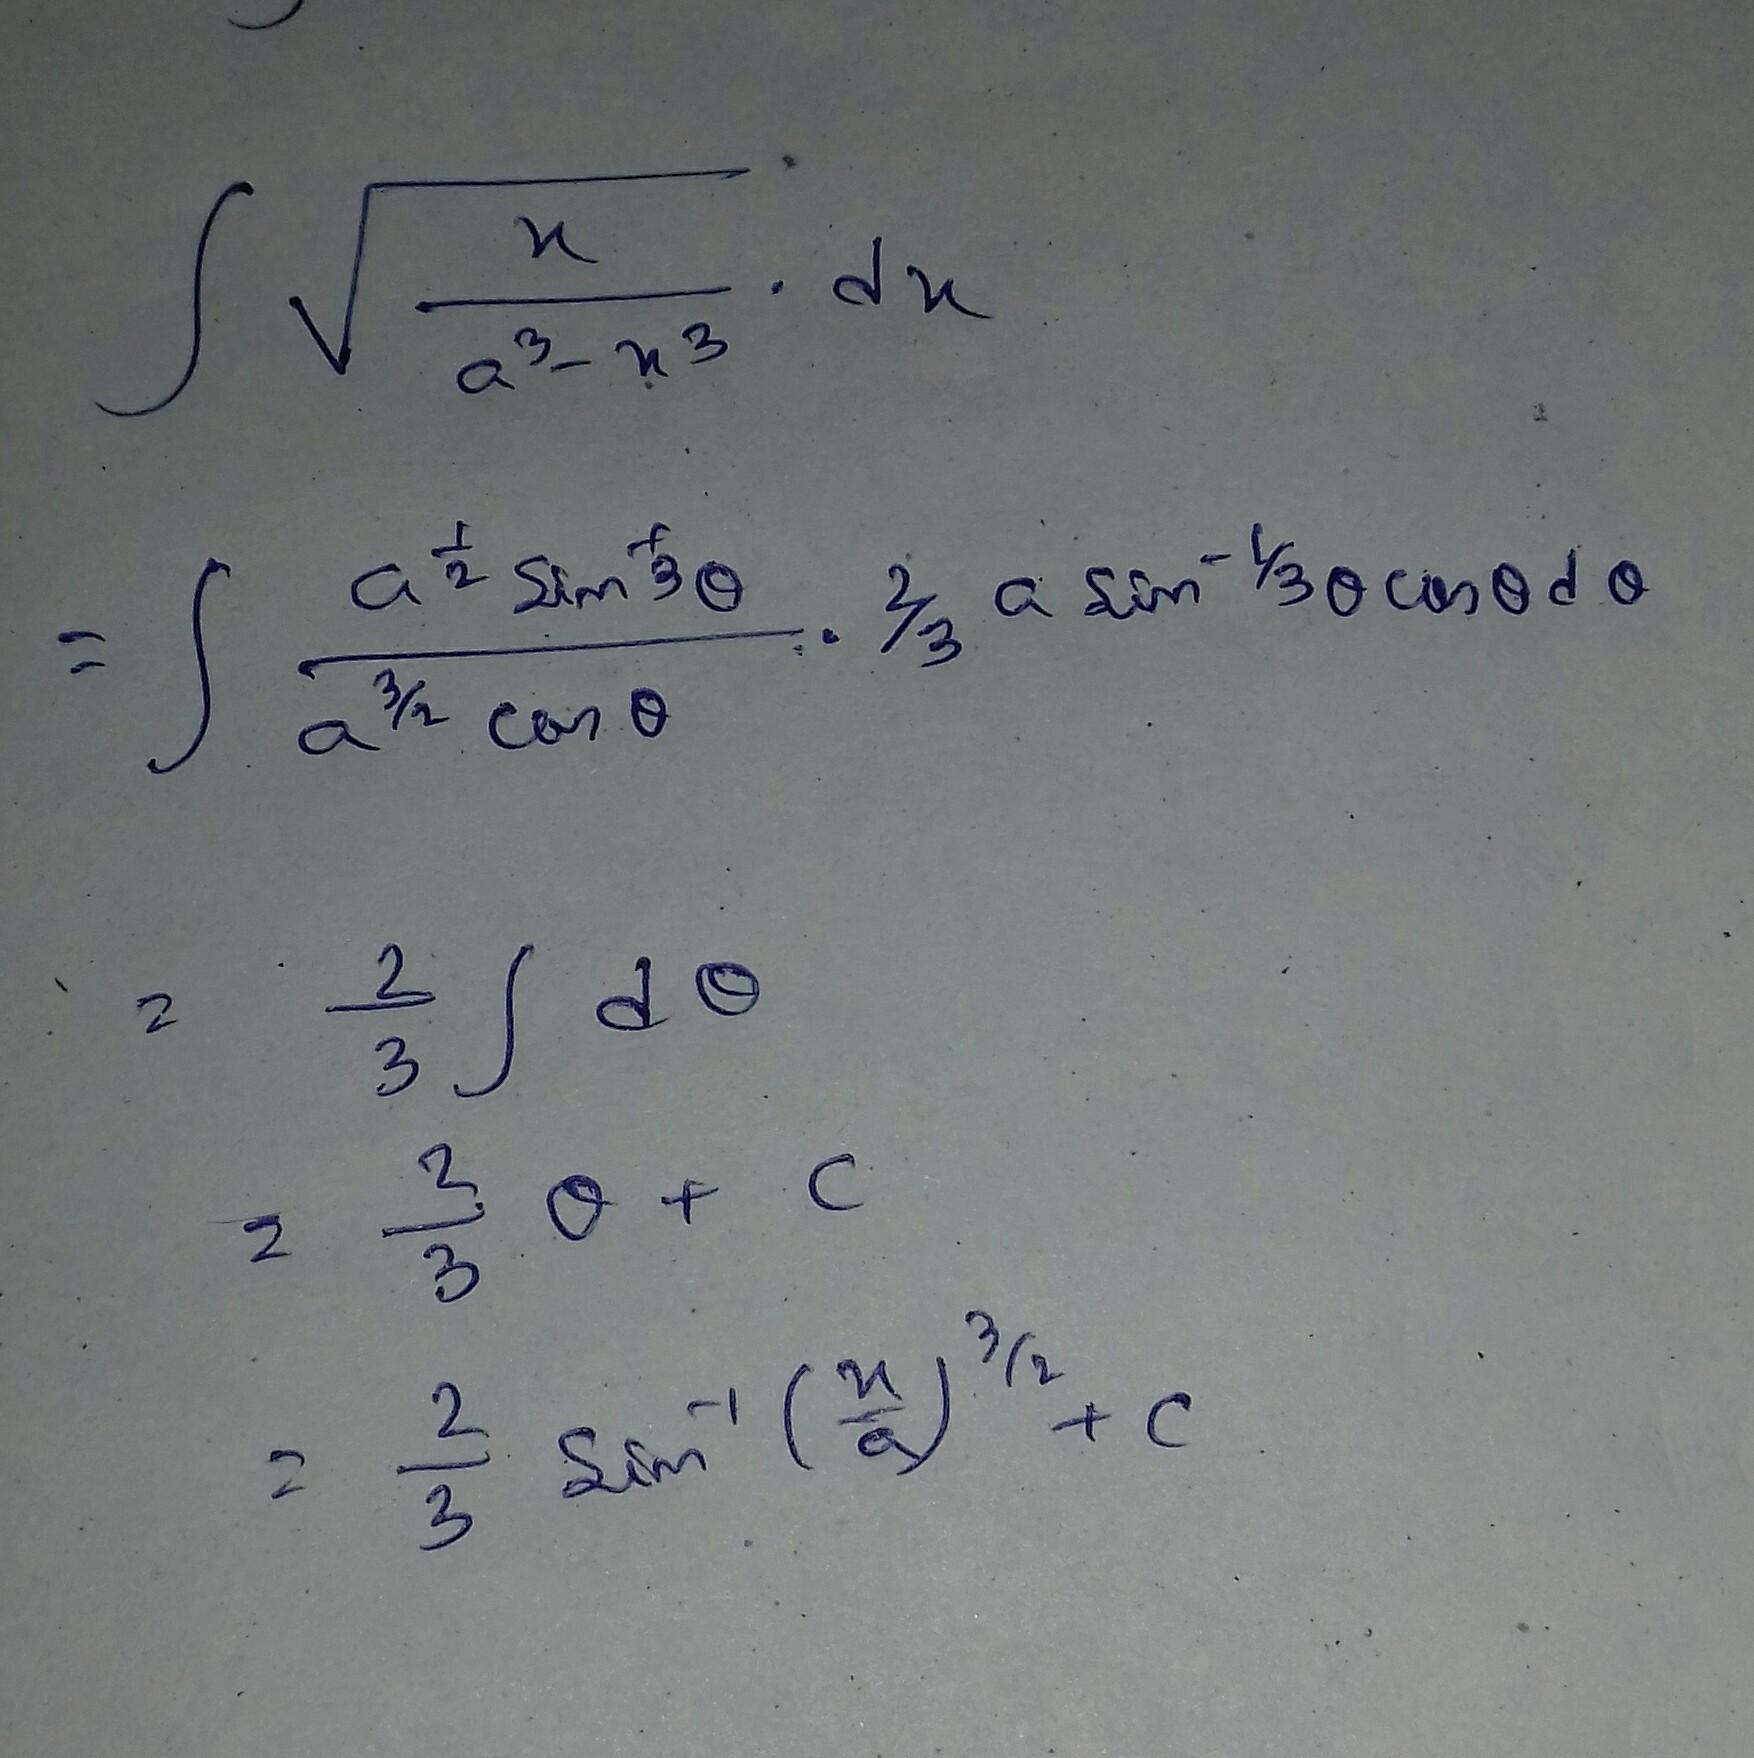 ∫ √(x / (a³ - x³)) . dx
= ∫ (a^(1/2) sin^(1/3) θ) / (a^(3/2) cos θ) . 2/3 a sin^(-1/3) θ cos θ dθ
= 2/3 ∫ dθ
= 2/3 θ + C
= 2/3 sin⁻¹ (x/a)^(3/2) + C